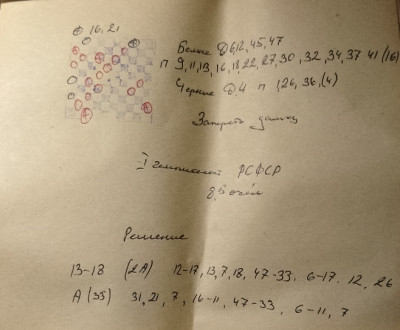 16, 21
Белые Д 6, 12, 45, 47
п 9, 11, 13, 16, 18, 22, 27, 30, 32, 34, 37 41 (16)
Черные Д. 4 п 1, 26, 36, (4)
Запереть дамку
I чемпионат РСФСР
Решение
13-18 (2А) 12-17, 13, 7, 18, 47-33. 6-17. 12, 26
А (35) 31, 21, 7, 16-11, 47-33, 6-11, 7